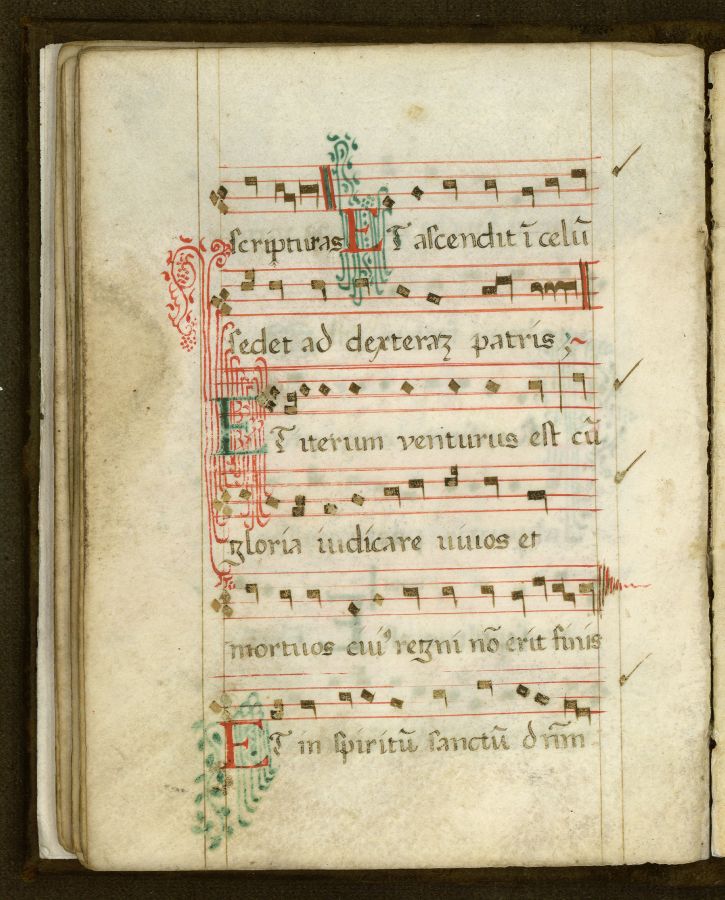 scripturas ET ascendit ī celū
sedet ad dexteraꝫ patris
ET iterum venturus est cū
gloria iudicare uiuos et
mortuos cuiꝰ regni nō erit finis
ET in spiritū sanctū dn̄m